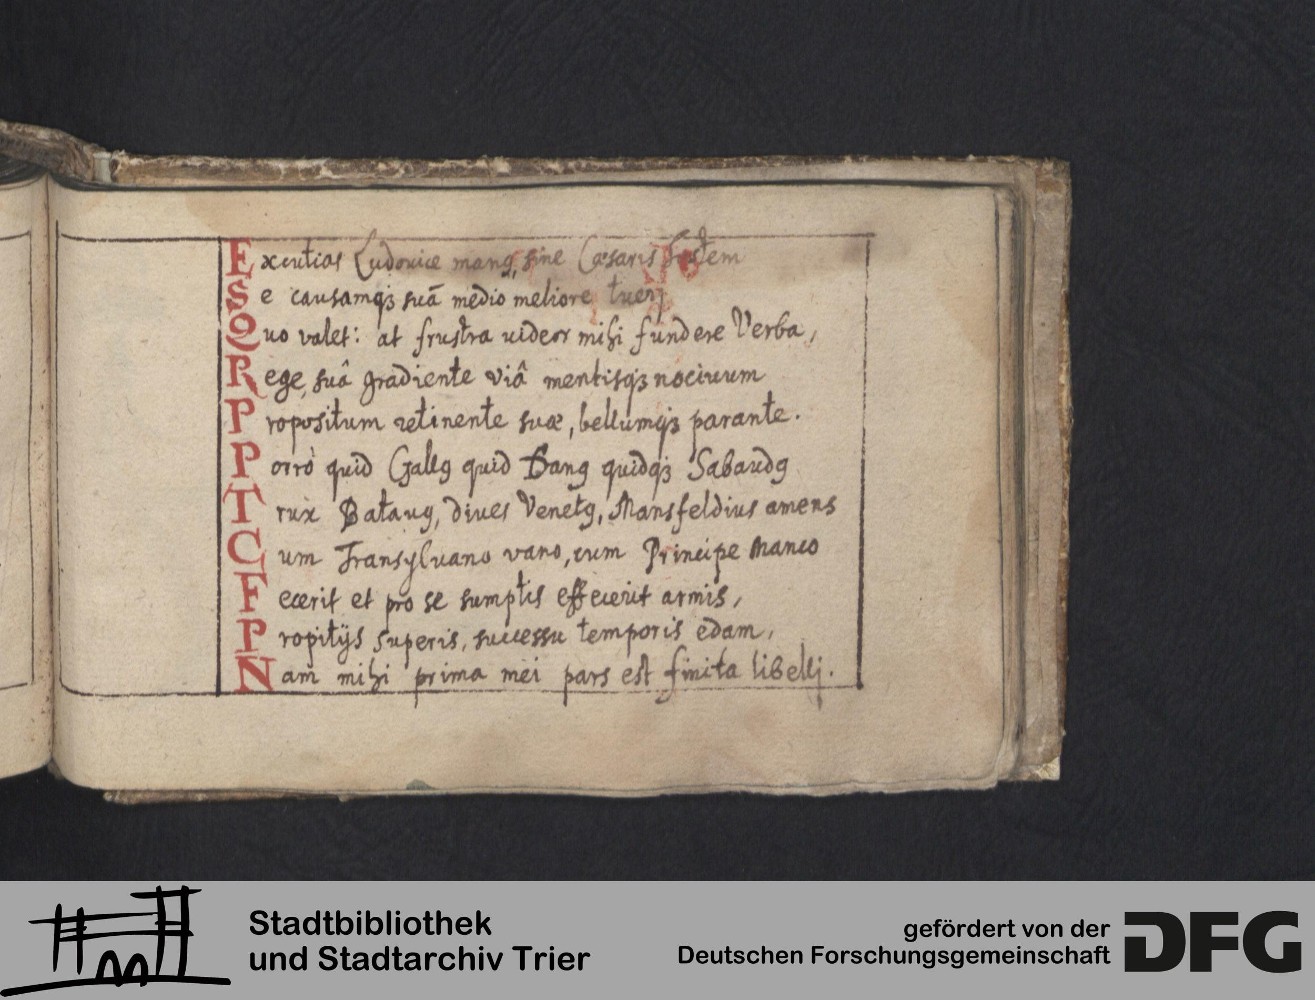 Excutias Ludovice manꝰ, sine Cæsaris hostem
Se causamqꝫ suā medio meliore tuerj
Quo valet: at frustra uideor mihi fundere Verba,
Rege, suâ gradiente viâ mentisqꝫ nociuum
Propositum retinente suæ, bellumqꝫ parante.
Porrò quid Gallꝰ quid Danꝰ quidqꝫ Sabaudꝰ
Trux Batauꝰ, diues Venetꝰ, Mansfeldius amens
Cum Transyluano vano, cum Principe manco
Fecerit et pro se sumptis effecerit armis,
Propitijs superis, successu temporis edam,
Nam mihi prima mei pars est finita libellj.
Stadtbibliothek
und Stadtarchiv Trier
gefördert von der
Deutschen Forschungsgemeinschaft
DFG